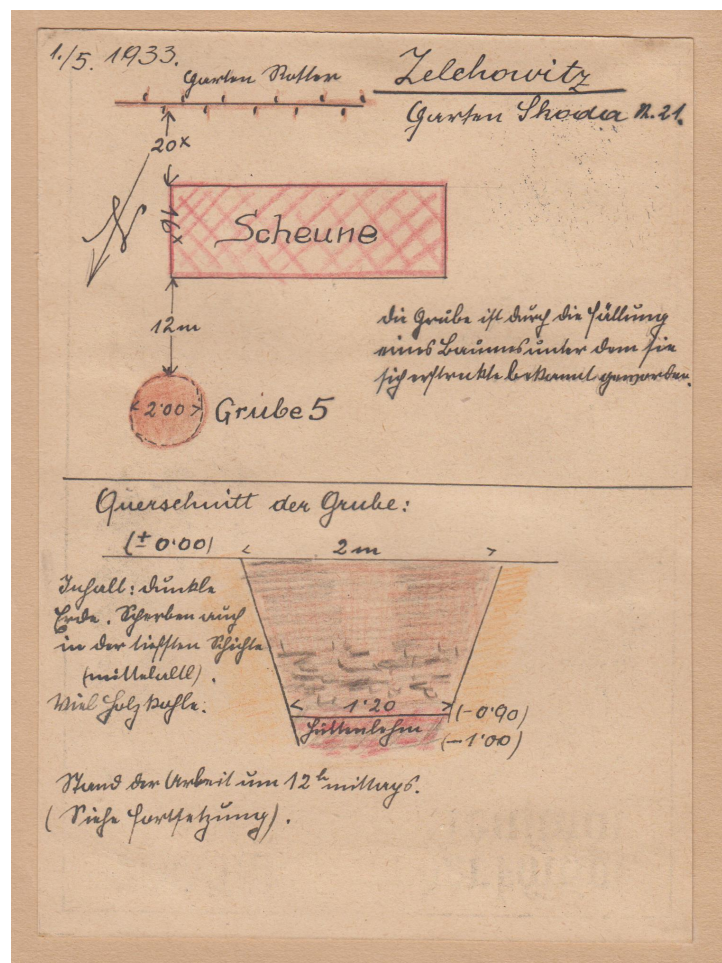 1./5. 1933.
Garten Rotter
Zelchowitz
Garten Skoda N. 21.
20x
16x
Scheune
N
12m
die Grube ist durch die Fällung
eines Baumes unter dem sie
sich erstreckte bekannt geworden.
2·00
Grube 5
Querschnitt der Grube:
(± 0·00)
2 m
Inhalt: dunkle
Erde. Scherben auch
in der tiefsten Schichte
(mittelaltl).
Viel Holzkohle.
1·20
(-0·90)
Hüttenlehm
(-1·00)
Stand der Arbeit um 12h mittags.
(Siehe Fortsetzung).